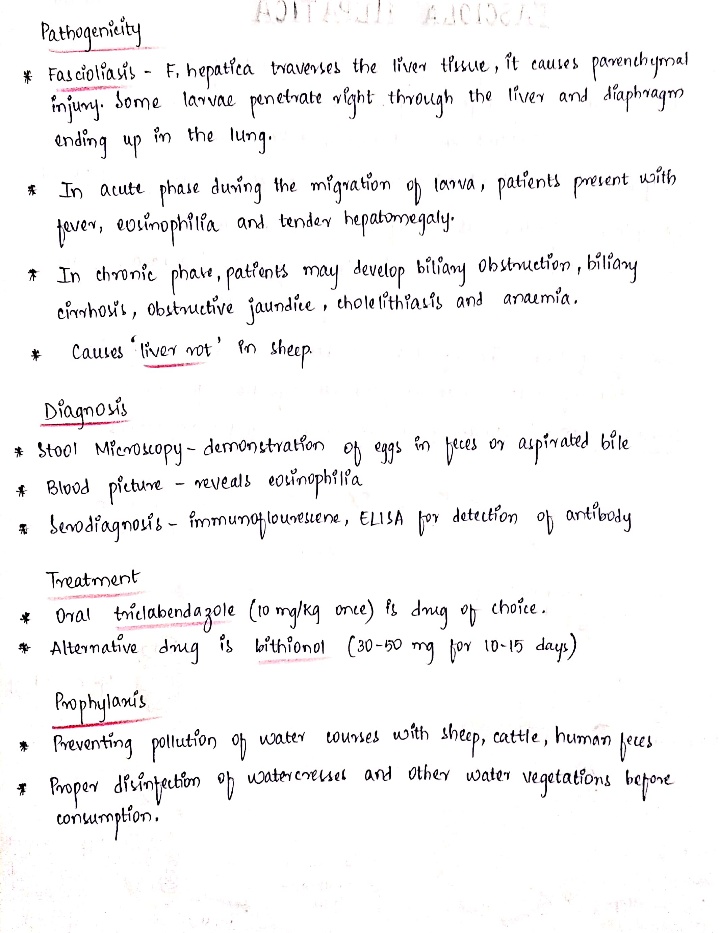 FASCIOLA HEPATICA
Pathogenicity
* Fascioliasis - F. hepatica traverses the liver tissue, it causes parenchymal
injury. Some larvae penetrate right through the liver and diaphragm
ending up in the lung.
* In acute phase during the migration of larva, patients present with
fever, eosinophilia and tender hepatomegaly.
* In chronic phase, patients may develop biliary obstruction, biliary
cirrhosis, obstructive jaundice, cholelithiasis and anaemia.
* Causes 'liver rot' in sheep.
Diagnosis
* Stool Microscopy - demonstration of eggs in feces or aspirated bile
* Blood picture - reveals eosinophilia
* Serodiagnosis - immunoflourescene, ELISA for detection of antibody
Treatment
* Oral triclabendazole (10 mg/kg once) is drug of choice.
* Alternative drug is bithionol (30-50 mg for 10-15 days)
Prophylaxis
* Preventing pollution of water courses with sheep, cattle, human feces
* Proper disinfection of watercresses and other water vegetations before
consumption.